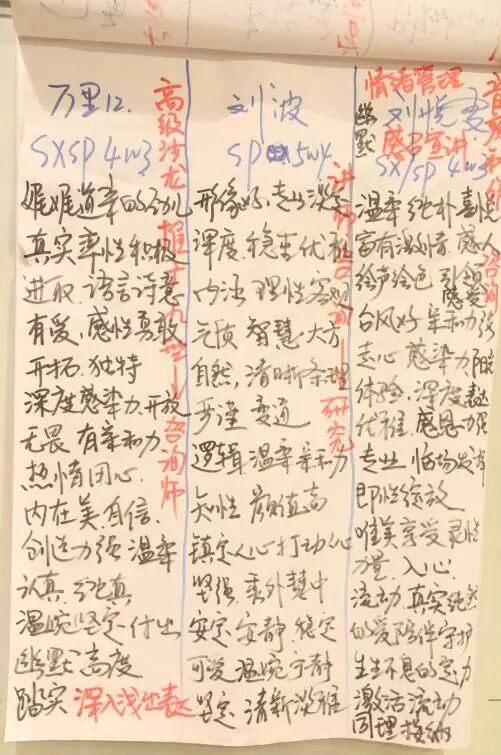 万里12.
SXSP 4w3
娓娓道来的幼儿
真实率性积极
进取.语言诗意
有爱,感性勇敢
开拓.独特
深度感染力.开放
无畏 有亲和力
热情用心.
内在美.自信.
创造力强 温柔
认真.纯真
温婉坚定.付出
幽默.高度
踏实 深入浅出表达
高级沙龙
咨询师
刘波
SP 5w4
形像好,
深度.稳重优雅
内涵 理性客观
元质 智慧.大方
自然,清晰条理
严谨 变通
逻辑 温柔亲和力
知性 颜值高
镇定人心打动人心
坚强.秀外慧中
安定 安静 稳定
可爱 温婉宁静
坚定.清新淡雅
研究
情绪管理
幽默
SX/SP 4w3
温柔纯朴喜悦
富有激情.感人
绘声绘色 引领
台风好 亲和力强
走心 感染力
体验.深度表达
优雅.感恩力强
专业 临场发挥
即性绽放
唯美享受灵性
力量.入心.
流动.真实纯然
的爱陪伴守护
生生不息的定力
激活流动
同理接纳
咨询